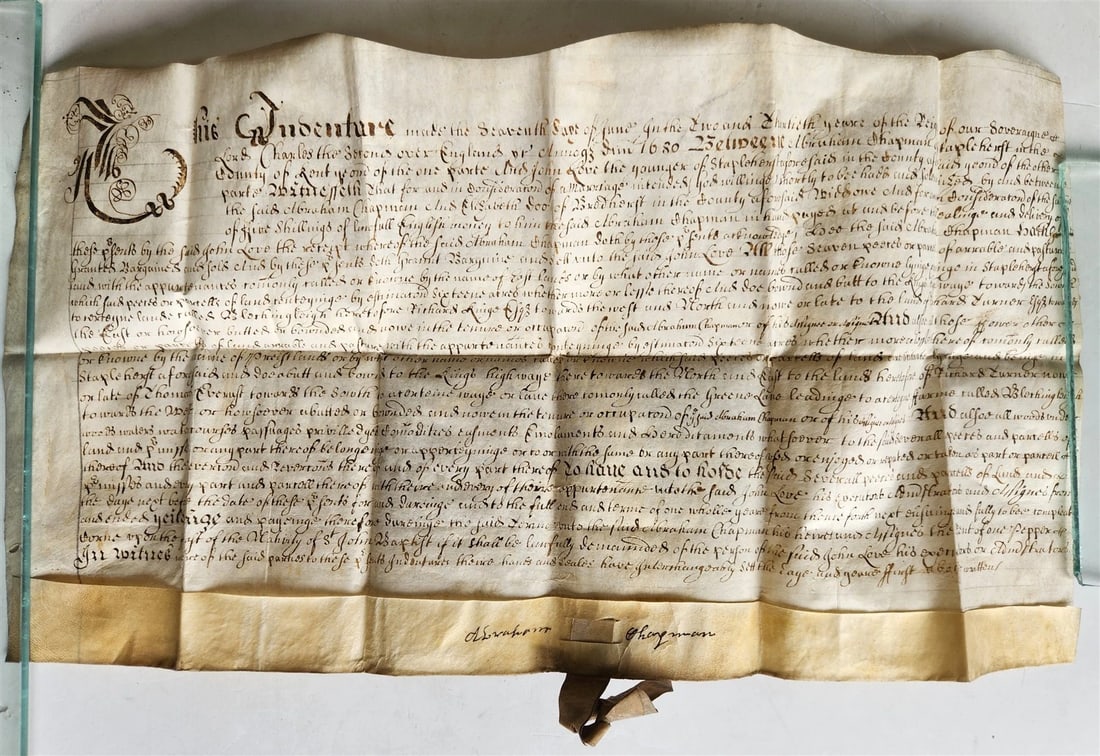 This Indenture made the Seaventh Daye of June In the Two and Thirtieth yeare of the Reigne of our Soveraigne
Lord Charles the Second over England &c Annoqz Dni 1680 Betweene Abraham Chapman of Staplehurst in the
County of Kent yeom of the one parte And John Love the younger of Staplehurst aforesaid in the County aforesaid yeom of the other
parte Witnesseth That for and in Consideracon of a Marriage intended (god willing) shortly to be had and solemnized by And betweene
the said Abraham Chapman And Elizabeth of in the County aforesaid Widdowe And for and in Consideracon of the
of Five Shillings of lawfull English money to him the said Abraham Chapman in hand payed at and before the ensealinge and delivery of
these psents by the said John Love the receipt whereof the said Abraham Chapman doth by these psents acknowledge Hee the said Abraham Chapman Hath
Granted Bargained and sold And by these psents doth Graunt Bargaine and sell unto the said John Love All those Seaven peeces or parcells of arrable and pasture
land with the appurtenances comonly called or knowne by the name of or by what other name or names called or knowne lyinge and beinge in Staplehurst aforesaid
which said peeces or parcells of land conteyninge by estimacon Sixteene acres whether more or lesse thereof And doe bound and butt to the Kings high waye towards the South
to certeyne lands called heretofore Richard Esqz towards the west and North and now or late to the land of Richard Turner Esqz towards
the East or howsoever butted or bounded and nowe in the tenure or occupacon of the said Abraham Chapman or of his Assignee or Assignes And alsoe those ffower other
peeces or parcells of land arrable and pasture with the appurtenances conteyninge by estimacon Sixteene acres whether more or lesse thereof comonly called
or knowne by the name of or by what other name or names
Staplehurst aforesaid and doe abutt and bound to the Kings high waye there towards the North and East to the lands heretofore of Richard Turner now
or late of Thomas Everest towards the South to a certeine waye or lane there comonly called the Greene Lane leadinge to a certeyne farme called
towards the West or howsoever abutted or bounded and nowe in the tenure or occupacon of the said Abraham Chapman or of his Assignes And alsoe all woods under
woods waters watercourses passages priviledges Comodities easments Emolaments and Hereditaments whatsoever to the said severall peeces and parcells of
land and pmisses or any part thereof belonginge or apperteyninge or to or with the same or any part thereof used or enjoyed or reputed or taken as part or parcell
thereof And the revercon and revercons thereof and of every part thereof To have and to holde the said severall peeces and parcells of Land and
pmisses and every part and parcell thereof with their and every of their appurtenances unto the said John Love his executors Administrators and Assignes from
the daye next before the date of these psents for and duringe and to the full end and terme of one whole yeare from thence forth next ensuing and fully to be compleat
and ended Yeilding and payenge therefore duringe the said Terme unto the said Abraham Chapman his heires and Assignes the rent of one Pepper
Corne upon the feast of the Nativity of St John Baptist if it shall be lawfully demaunded of the person of the said John Love his executors or Administrators
In witnes whereof the said parties to these psents Indentures theire hands and seales have interchangeably sett the daye and yeare ffirst above written
Abraham Chapman